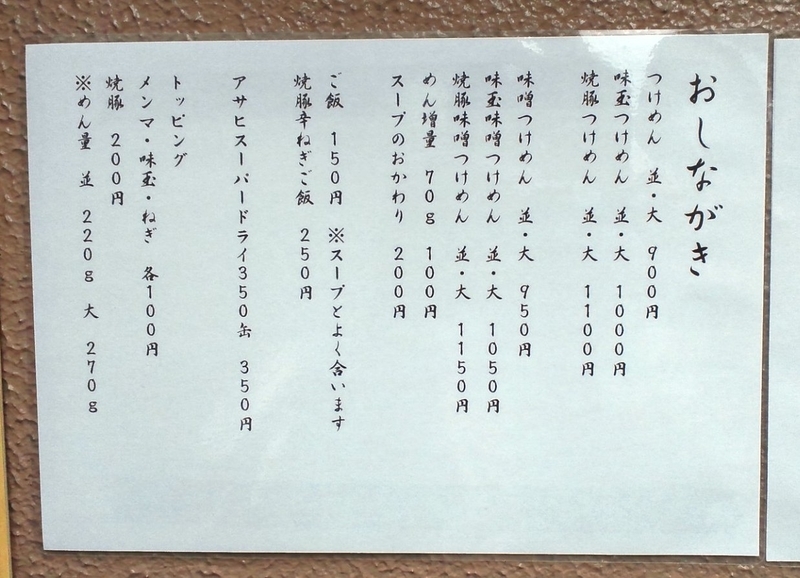 おしながき
つけめん 並・大 900円
味玉つけめん 並・大 1000円
焼豚つけめん 並・大 1100円
味噌つけめん 並・大 950円
味玉味噌つけめん 並・大 1050円
焼豚味噌つけめん 並・大 1150円
めん増量 70g 100円
スープのおかわり 200円
ご飯 150円 ※スープとよく合います
焼豚辛ねぎご飯 250円
アサヒスーパードライ350缶 350円
トッピング
メンマ・味玉・ねぎ 各100円
焼豚 200円
※めん量 並 220g 大 270g